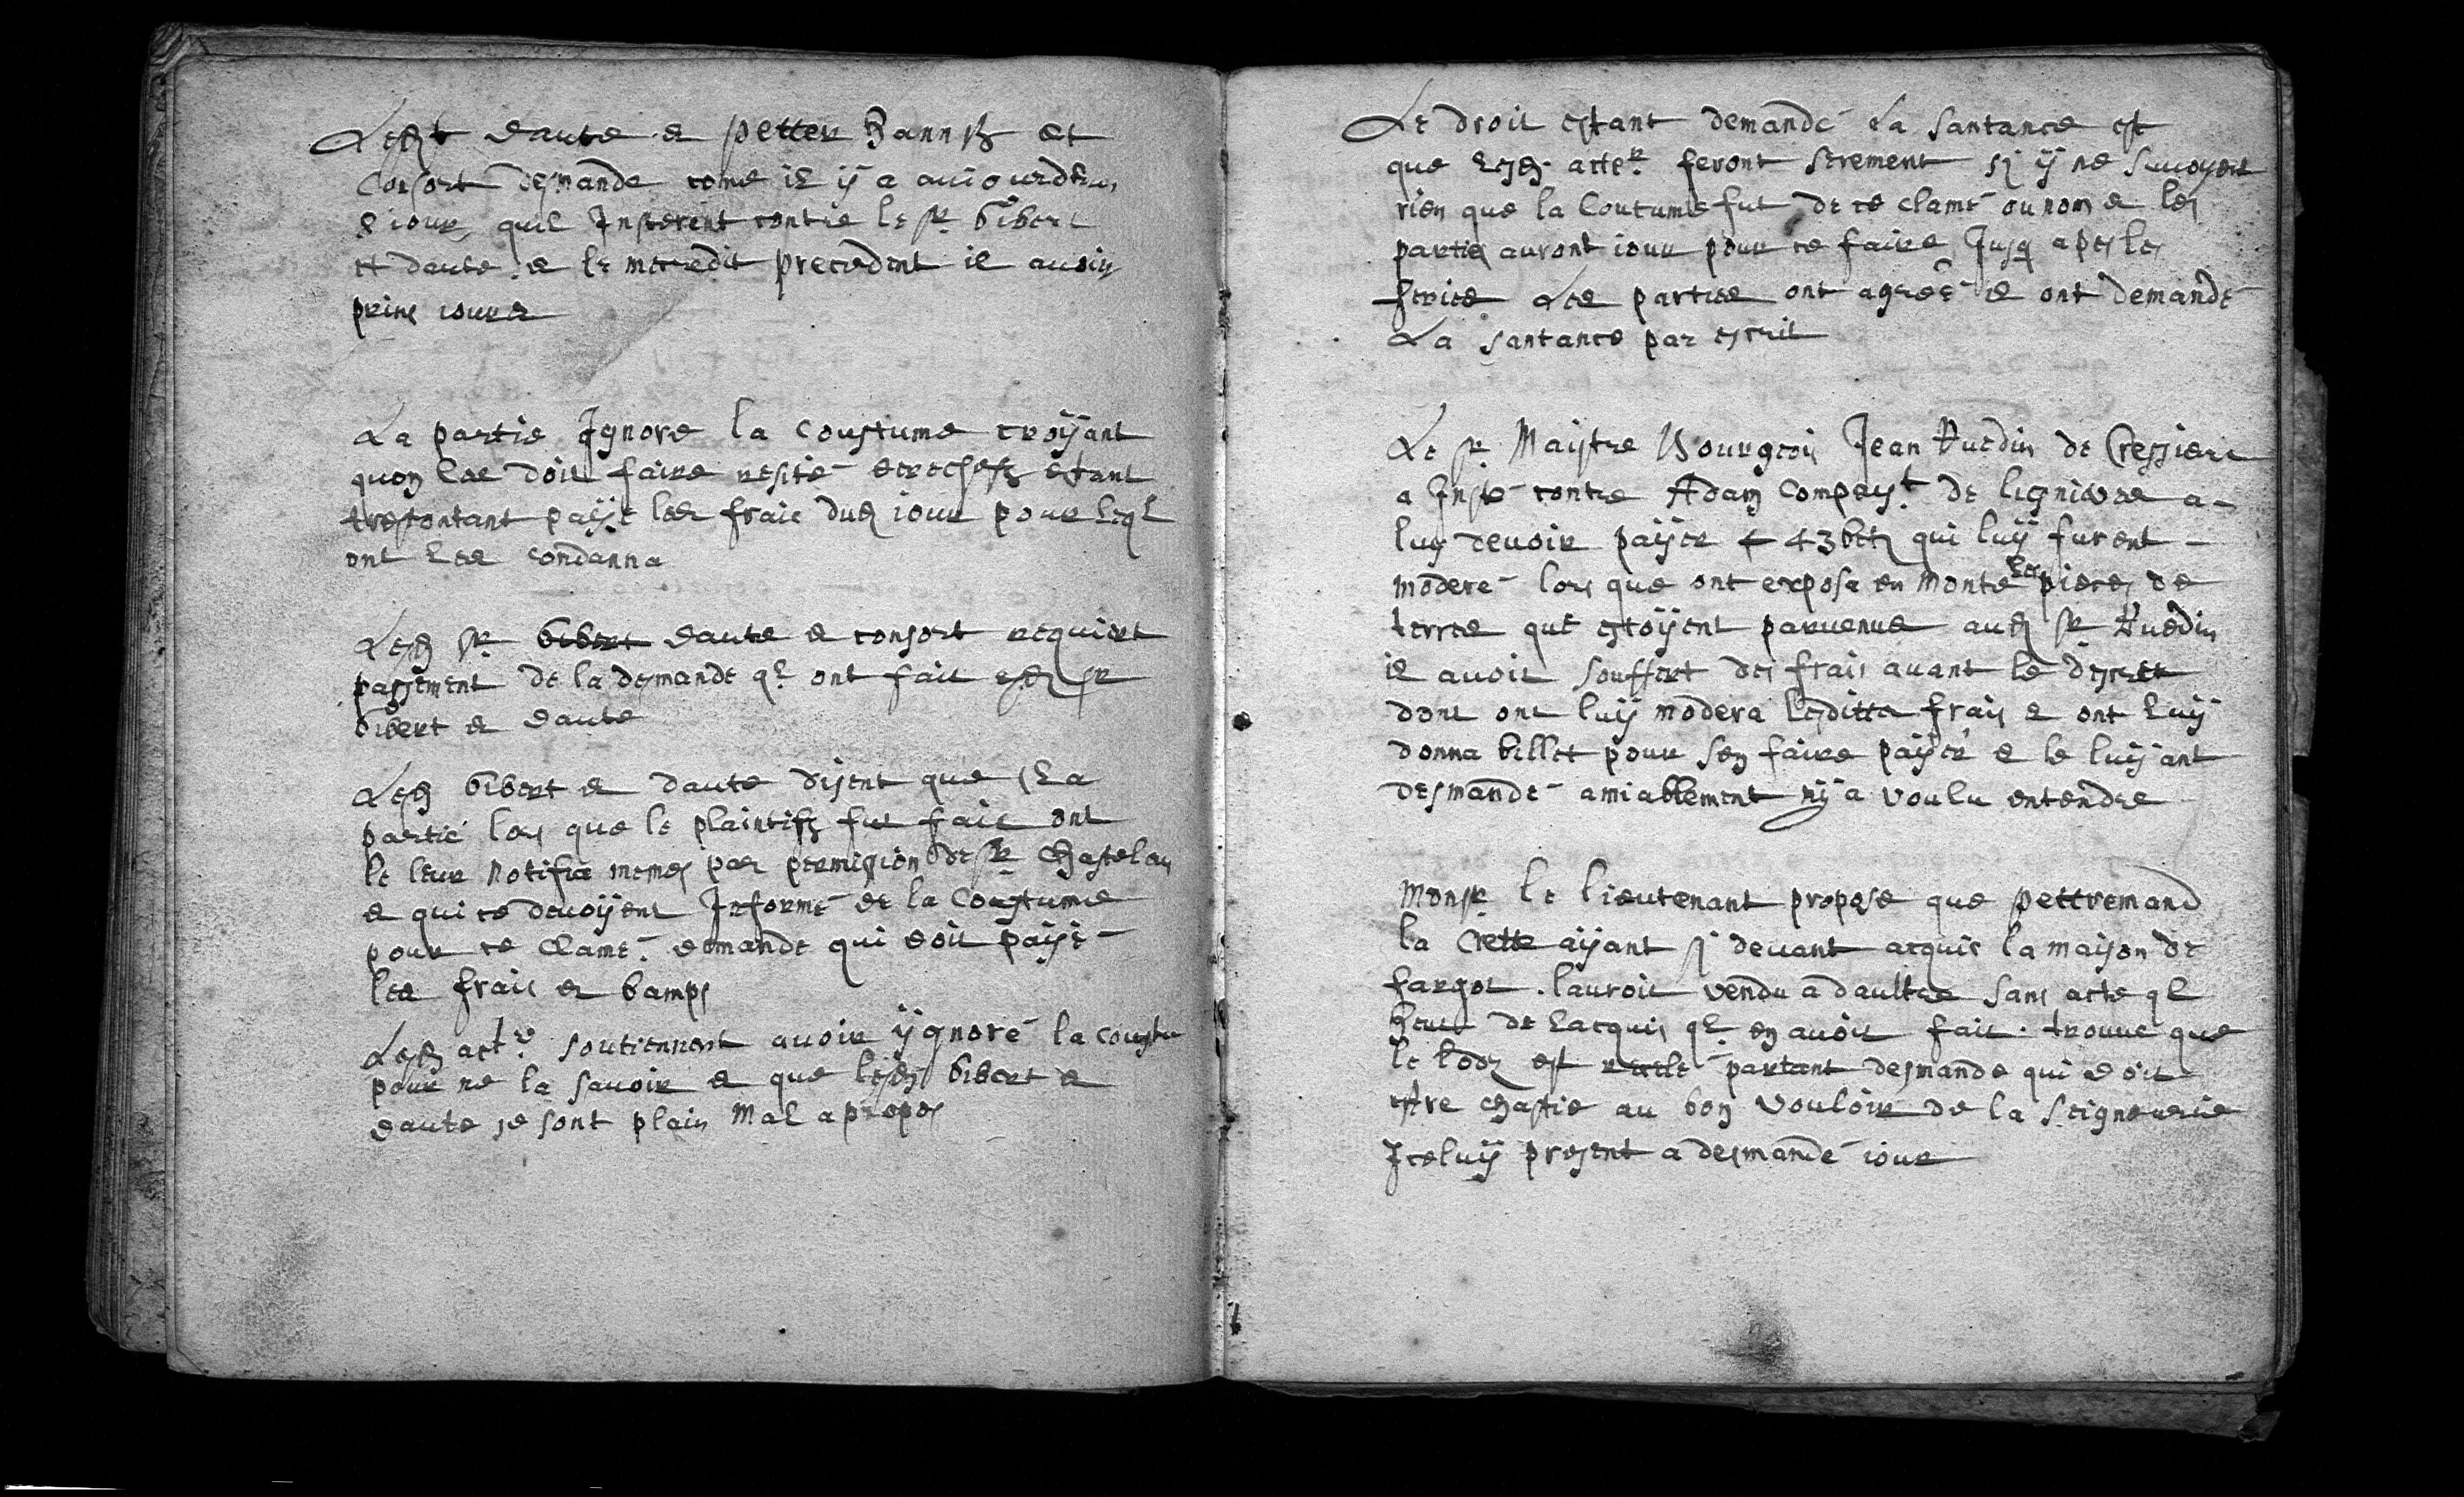 Lesdt daute & petter Jann et
Consort desmande come il ÿ a auiourdhuy
8 iour quil Insterent contre le sr bibert
et daute & le mecredit precedent il auoiy
prins iour

La partie Ignore la Coustume croÿant
quon doit faire estant
paÿe les frais dud iour pour leql
ont les condanna

Lesd sr bibert daute & consort requiert
passement de la desmande ql ont fait sr
bibert & daute

Lesd bibert & daute disent que la
partie lors que le plaintifz fut fait ont
le leur notifia memes par permission de sr Chastelain
& qui ce deuoÿent Informe de la Coustume
pour ce Clame. demande qui doit paÿe
les frais & bamps
Lesd actr soutiennent auoir ÿgnoré la coustu
pour ne la sauoir & que lesd bibert &
daute se sont plain mal a propos

Le droit estant demandé La santance est
que lesd acter feront serement sy ÿ ne sauoyent
rien que la Coutume fut de ce clame ou non & les
parties auront iour pour ce faire Jusq apes les
ferice Les parties ont agreé & ont demandé
La santance par escrit

Le sr Maistre Bourgeois Jean Vuedin de Cressier
a Insté contre Adam Compayt de lignieres a
luy deuoir paÿer 43 btz qui luÿ furent
moderé lors que ont exposa en monte les pieces de
terres que estoÿent paruenue aud sr Vuedin
il auoit souffert des frais auant le descret
dont ont luÿ modera lesditte frais & ont luÿ
donna billet pour sen faire paÿer & le luÿ ant
desmandé amiablement nÿ a voulu entendre

Monsr le lieutenant propose que pettremand
la Crette aÿant sy deuant acquis la maison de
fargot. lauroit vendu a daultre sans acte ql
heut de lacquis ql en auoit fait. trouue que
le lodz est partant desmande qui doit
estre chastie au bon vouloir de la Seigneurie
Iceluÿ present a desmandé iour